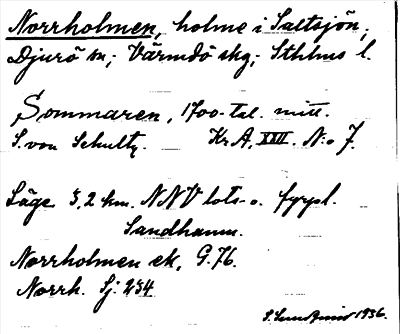 Norrholmen, holme i Saltsjön,
Djurö sn; Värmdö skg; Sthlms l.
Sommaren, 1700-tal. mitt.
S. von Schultz. Kr.A. XXIII. N:o 7.
Läge 3,2 km. NNV lots- o. fyrpl.
Sandhamn.
Norrholmen ek, G. 76.
Norrh. Sj: 234
1936.